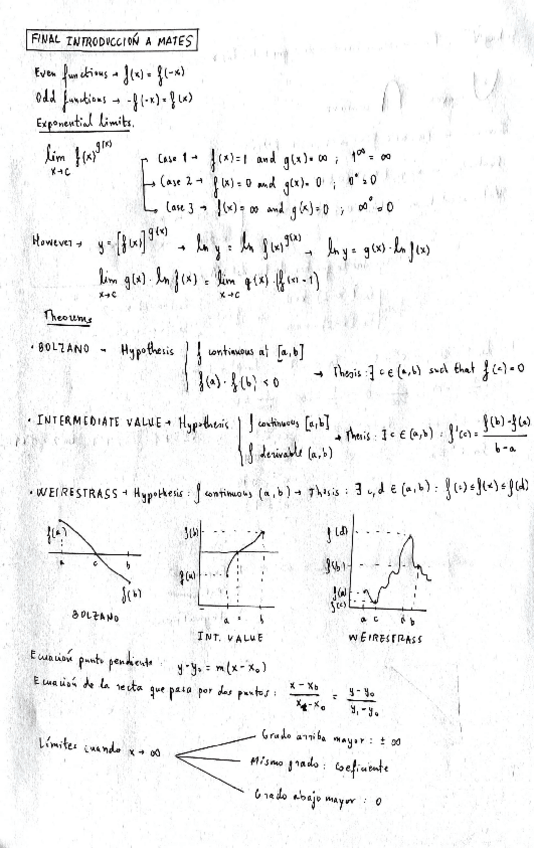 FINAL INTRODUCCIÓN A MATES
Even functions → f(x) = f(-x)
Odd functions → -f(-x) = f(x)
Exponential limits.
lim x→c f(x)^g(x)
Case 1 → f(x)=1 and g(x)=∞ ; 1^∞ = ∞
Case 2 → f(x)=0 and g(x)=0 ; 0^0 = 0
Case 3 → f(x)=∞ and g(x)=0 ; ∞^0 = 0
However → y = [f(x)]^g(x) → ln y = ln f(x)^g(x) → ln y = g(x) · ln f(x)
lim x→c g(x) · ln f(x) = lim x→c g(x) · (f(x) - 1)
Theorems
· BOLZANO - Hypothesis { f continuous at [a,b]
f(a) · f(b) < 0 → Thesis : ∃ c ∈ (a,b) such that f(c) = 0
· INTERMEDIATE VALUE → Hypothesis { f continuous [a,b]
f derivable (a,b) → Thesis : ∃ c ∈ (a,b) : f'(c) = (f(b) - f(a))/(b - a)
· WEIRESTRASS → Hypothesis : f continuous (a,b) → Thesis : ∃ c,d ∈ (a,b) : f(c) ≤ f(x) ≤ f(d)
f(a) a c b f(b)
BOLZANO
f(b) f(a) a c b
INT. VALUE
f(d) f(b) f(a) f(c) a c d b
WEIRESTRASS
Ecuación punto pendiente : y-y₀ = m(x-x₀)
Ecuación de la recta que pasa por dos puntos : (x - x₀)/(x₁ - x₀) = (y - y₀)/(y₁ - y₀)
Límites cuando x → ∞
Grado arriba mayor : ± ∞
Mismo grado : coeficiente
Grado abajo mayor : 0